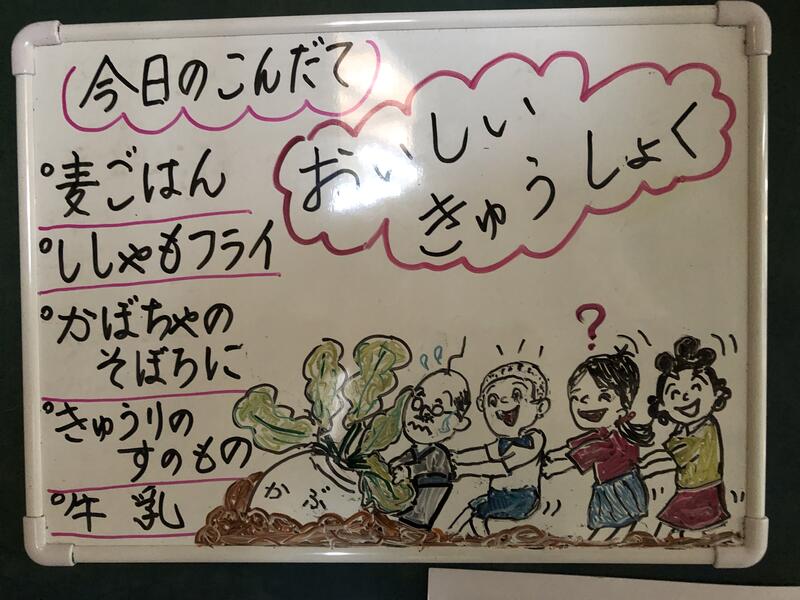 今日のこんだて
おいしい
きゅうしょく
○麦ごはん
○ししゃもフライ
○かぼちゃの
そぼろに
○きゅうりの
すのもの
○牛乳
?
かぶ